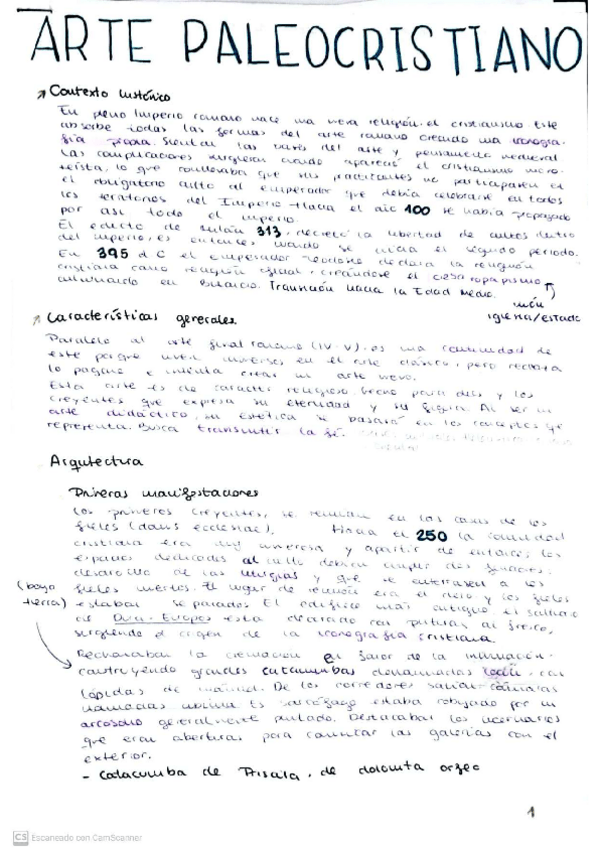 ARTE PALEOCRISTIANO
Contexto histórico
En pleno Imperio romano nace una nueva religión: el cristianismo. Este
absorbe todas las formas del arte romano creando una iconogra-
fía propia. Sientan las bases del arte y pensamiento medieval.
Las complicaciones surgieron cuando apareció el cristianismo mono-
teísta, lo que conllevaba que sus practicantes no participasen en
el obligatorio culto al emperador que debía celebrarse en todos
los territorios del Imperio. Hacia el año 100 se había propagado
por casi todo el imperio.
El edicto de Milán 313, decretó la libertad de cultos dentro
del imperio, es entonces cuando se inicia el segundo periodo.
En 395 d C el emperador Teodosio declara la religión
cristiana como religión oficial, creándose el cesaropapismo
culminando en Bizancio. Transición hacia la Edad Media.
unión
iglesia/estado
Características generales
Paralelo al arte final romano (IV-V), es una continuidad de
este porque viven inmersos en el arte clásico, pero rechaza
lo pagano e intenta crear un arte nuevo.
Este arte es de carácter religioso, hecho para dios y los
creyentes que expresa su eternidad y su figura. Al ser un
arte didáctico, su estética se basará en los conceptos que
representa. Busca transmitir la fé.
Arquitectura
Primeras manifestaciones
Los primeros creyentes, se reunían en las casas de los
fieles (domus ecclesiae). Hacia el 250 la comunidad
cristiana era muy numerosa y a partir de entonces, los
espacios dedicados al culto debían cumplir dos funciones:
desarrollo de las liturgias y que se enterrasen a los
fieles muertos. El lugar de reunión era el clero y los fieles
estaban separados. El edificio más antiguo, el santuario
de Dura-Europos está decorado con pinturas al fresco,
surgiendo el origen de la iconografía cristiana.
(bajo
tierra)
Rechazaban la cremación en favor de la inhumación.
construyendo grandes catacumbas denominadas loculi, con
lápidas de mármol. De los corredores salían cámaras
llamadas cubicula. El sarcófago estaba cobijado por un
arcosolio generalmente pintado. Destacaban los lucernarios
que eran aberturas para comunicar las galerías con el
exterior.
- Catacumba de Prisila, de
1
CS Escaneado con CamScanner